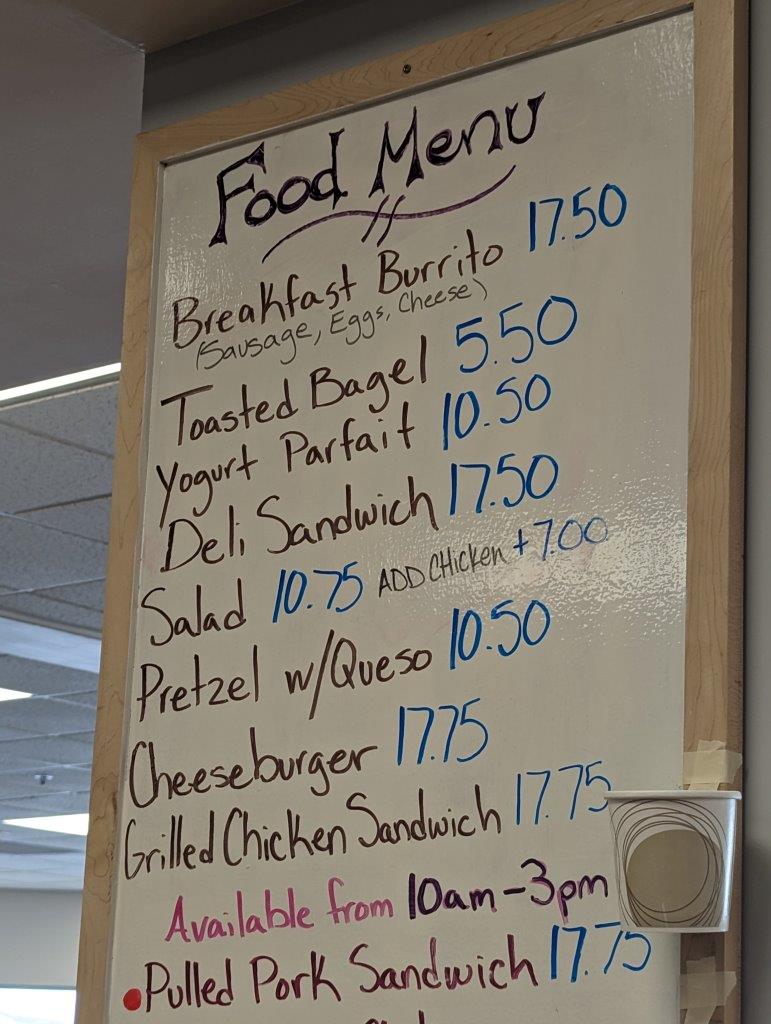 Food Menu
Breakfast Burrito 17.50
(Sausage, Eggs, Cheese)
Toasted Bagel 5.50
Yogurt Parfait 10.50
Deli Sandwich 17.50
Salad 10.75 ADD CHicken + 7.00
Pretzel w/Queso 10.50
Cheeseburger 17.75
Grilled Chicken Sandwich 17.75
Available from 10am-3pm
Pulled Pork Sandwich 17.75